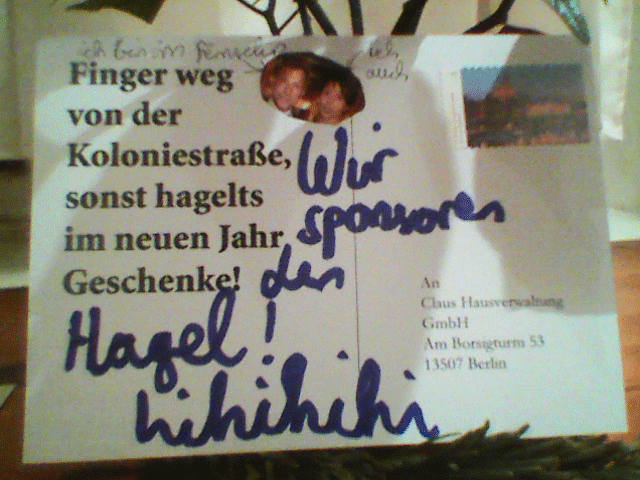 ich bin im Fernsehn
ich
auch
Finger weg
von der
Koloniestraße,
sonst hagelts
im neuen Jahr
Geschenke!
Wir
sponsoren
den
Hagel!
hihihihi
An
Claus Hausverwaltung
GmbH
Am Borsigturm 53
13507 Berlin